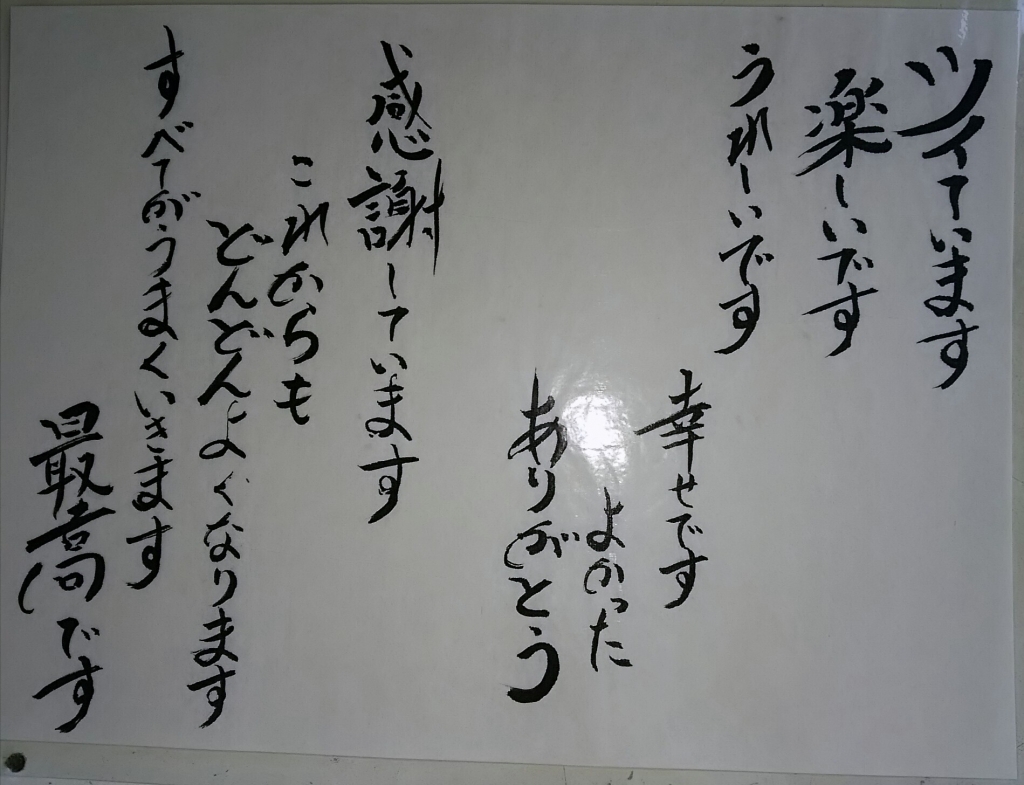 ツイています
楽しいです
うれしいです
幸せです
よかった
ありがとう
感謝しています
これからも
どんどんよくなります
すべてがうまくいきます
最高です